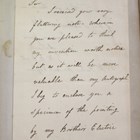 Sir,
I received your very
flattering note, wherein
you are pleased to think
my invention worth notice,
but as it will be more
valuable than my Autograph
I beg to enclose you a
Specimen of the printing
by my Brothers Electro